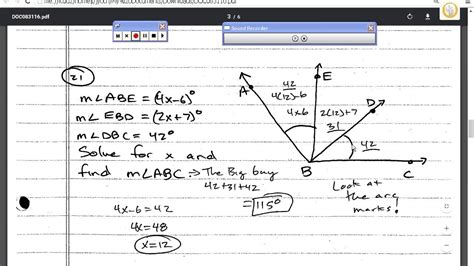 DOC083116.pdf
3 / 6
Sound Recorder
21
m∠ABE = (4x-6)°
m∠EBD = (2x+7)°
m∠DBC = 42°
Solve for x and
find m∠ABC
→ The Big Guy
42+31+42
= 115°
4x-6=42
4x=48
x=12
A
42
4(12)-6
4x-6
E
2(12)+7
31
D
42
B
C
Look at
the arc
marks!